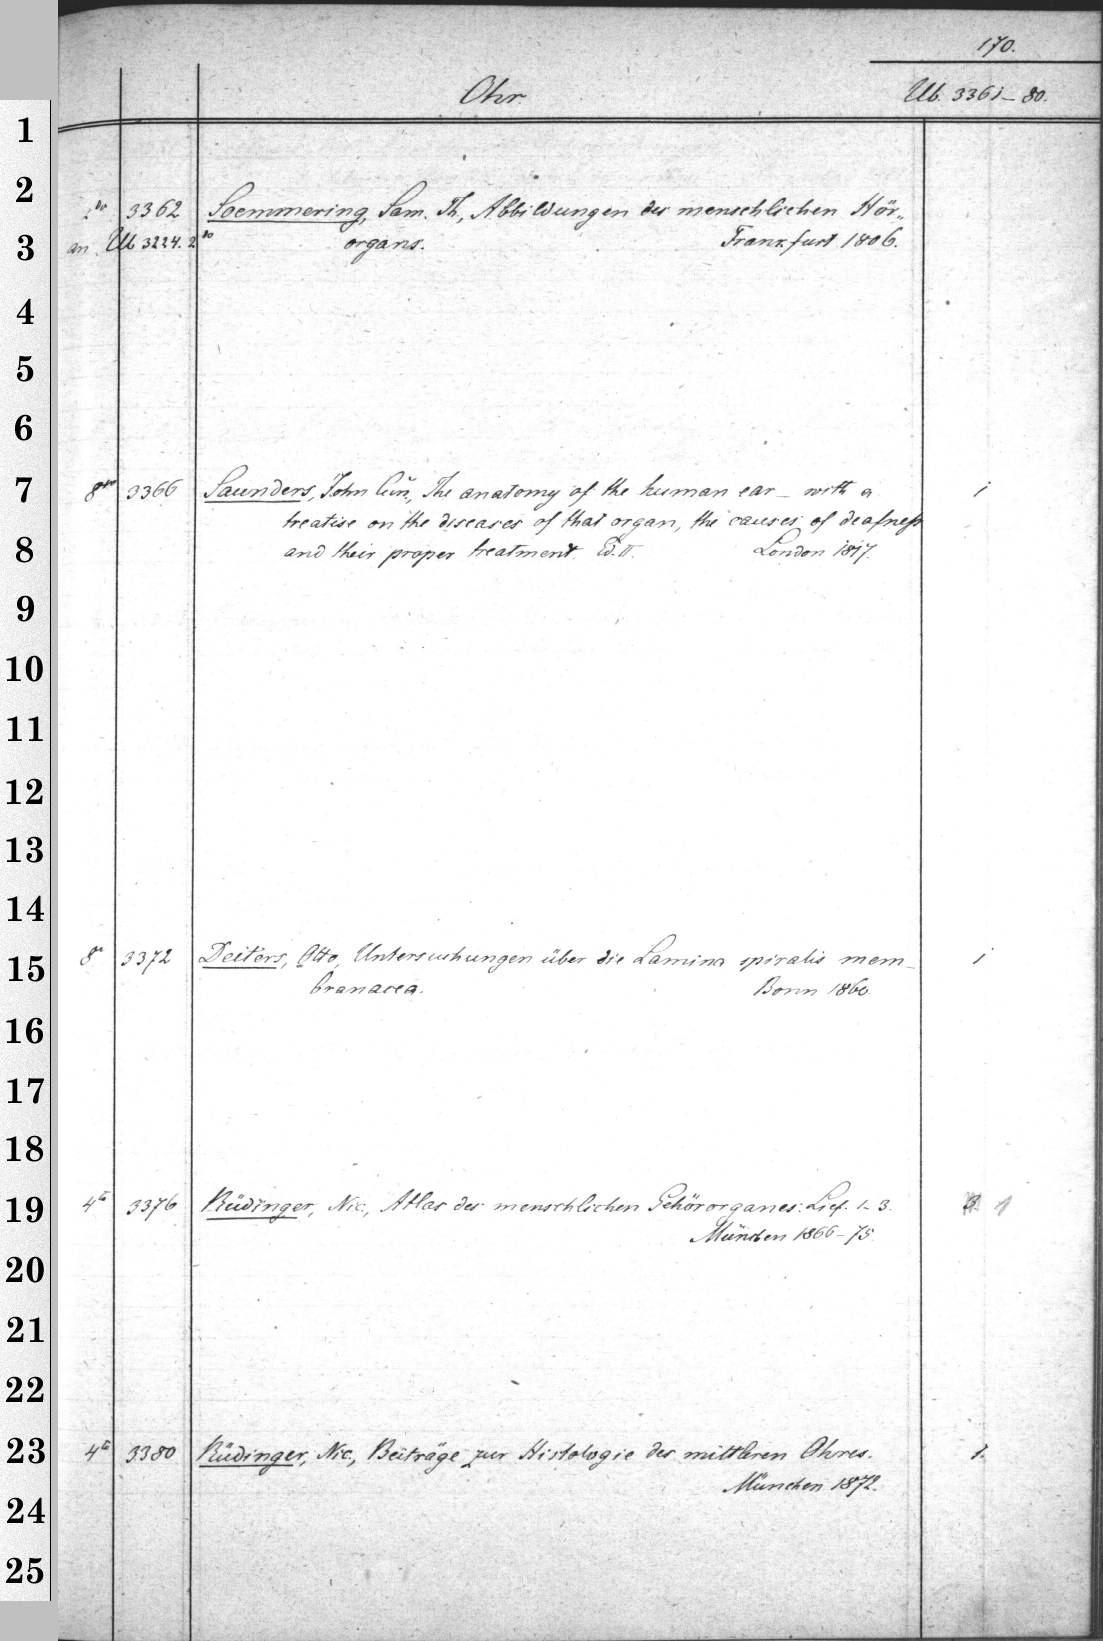 170.
Ohr.
Ub. 3361–80.
1
2
2do 3362 Soemmering, Sam. Th., Abbildungen des menschlichen Hör-
3
an Ub 3224. 2do organs. Frankfurt 1806.
4
5
6
7
8vo 3366 Saunders, John Cun., The anatomy of the human ear – with a 1
treatise on the diseases of that organ, the causes of deafness
8
and their proper treatment. Ed. II. London 1817.
9
10
11
12
13
14
15
8o 3372 Deiters, Otto, Untersuchungen über die Lamina spiralis mem- 1
branacea. Bonn 1860.
16
17
18
19
4to 3376 Rüdinger, Nic., Atlas des menschlichen Gehörorganes: Lief. 1–3. 1
München 1866–75.
20
21
22
23
4to 3380 Rüdinger, Nic., Beiträge zur Histologie des mittleren Ohres. 1.
München 1872.
24
25